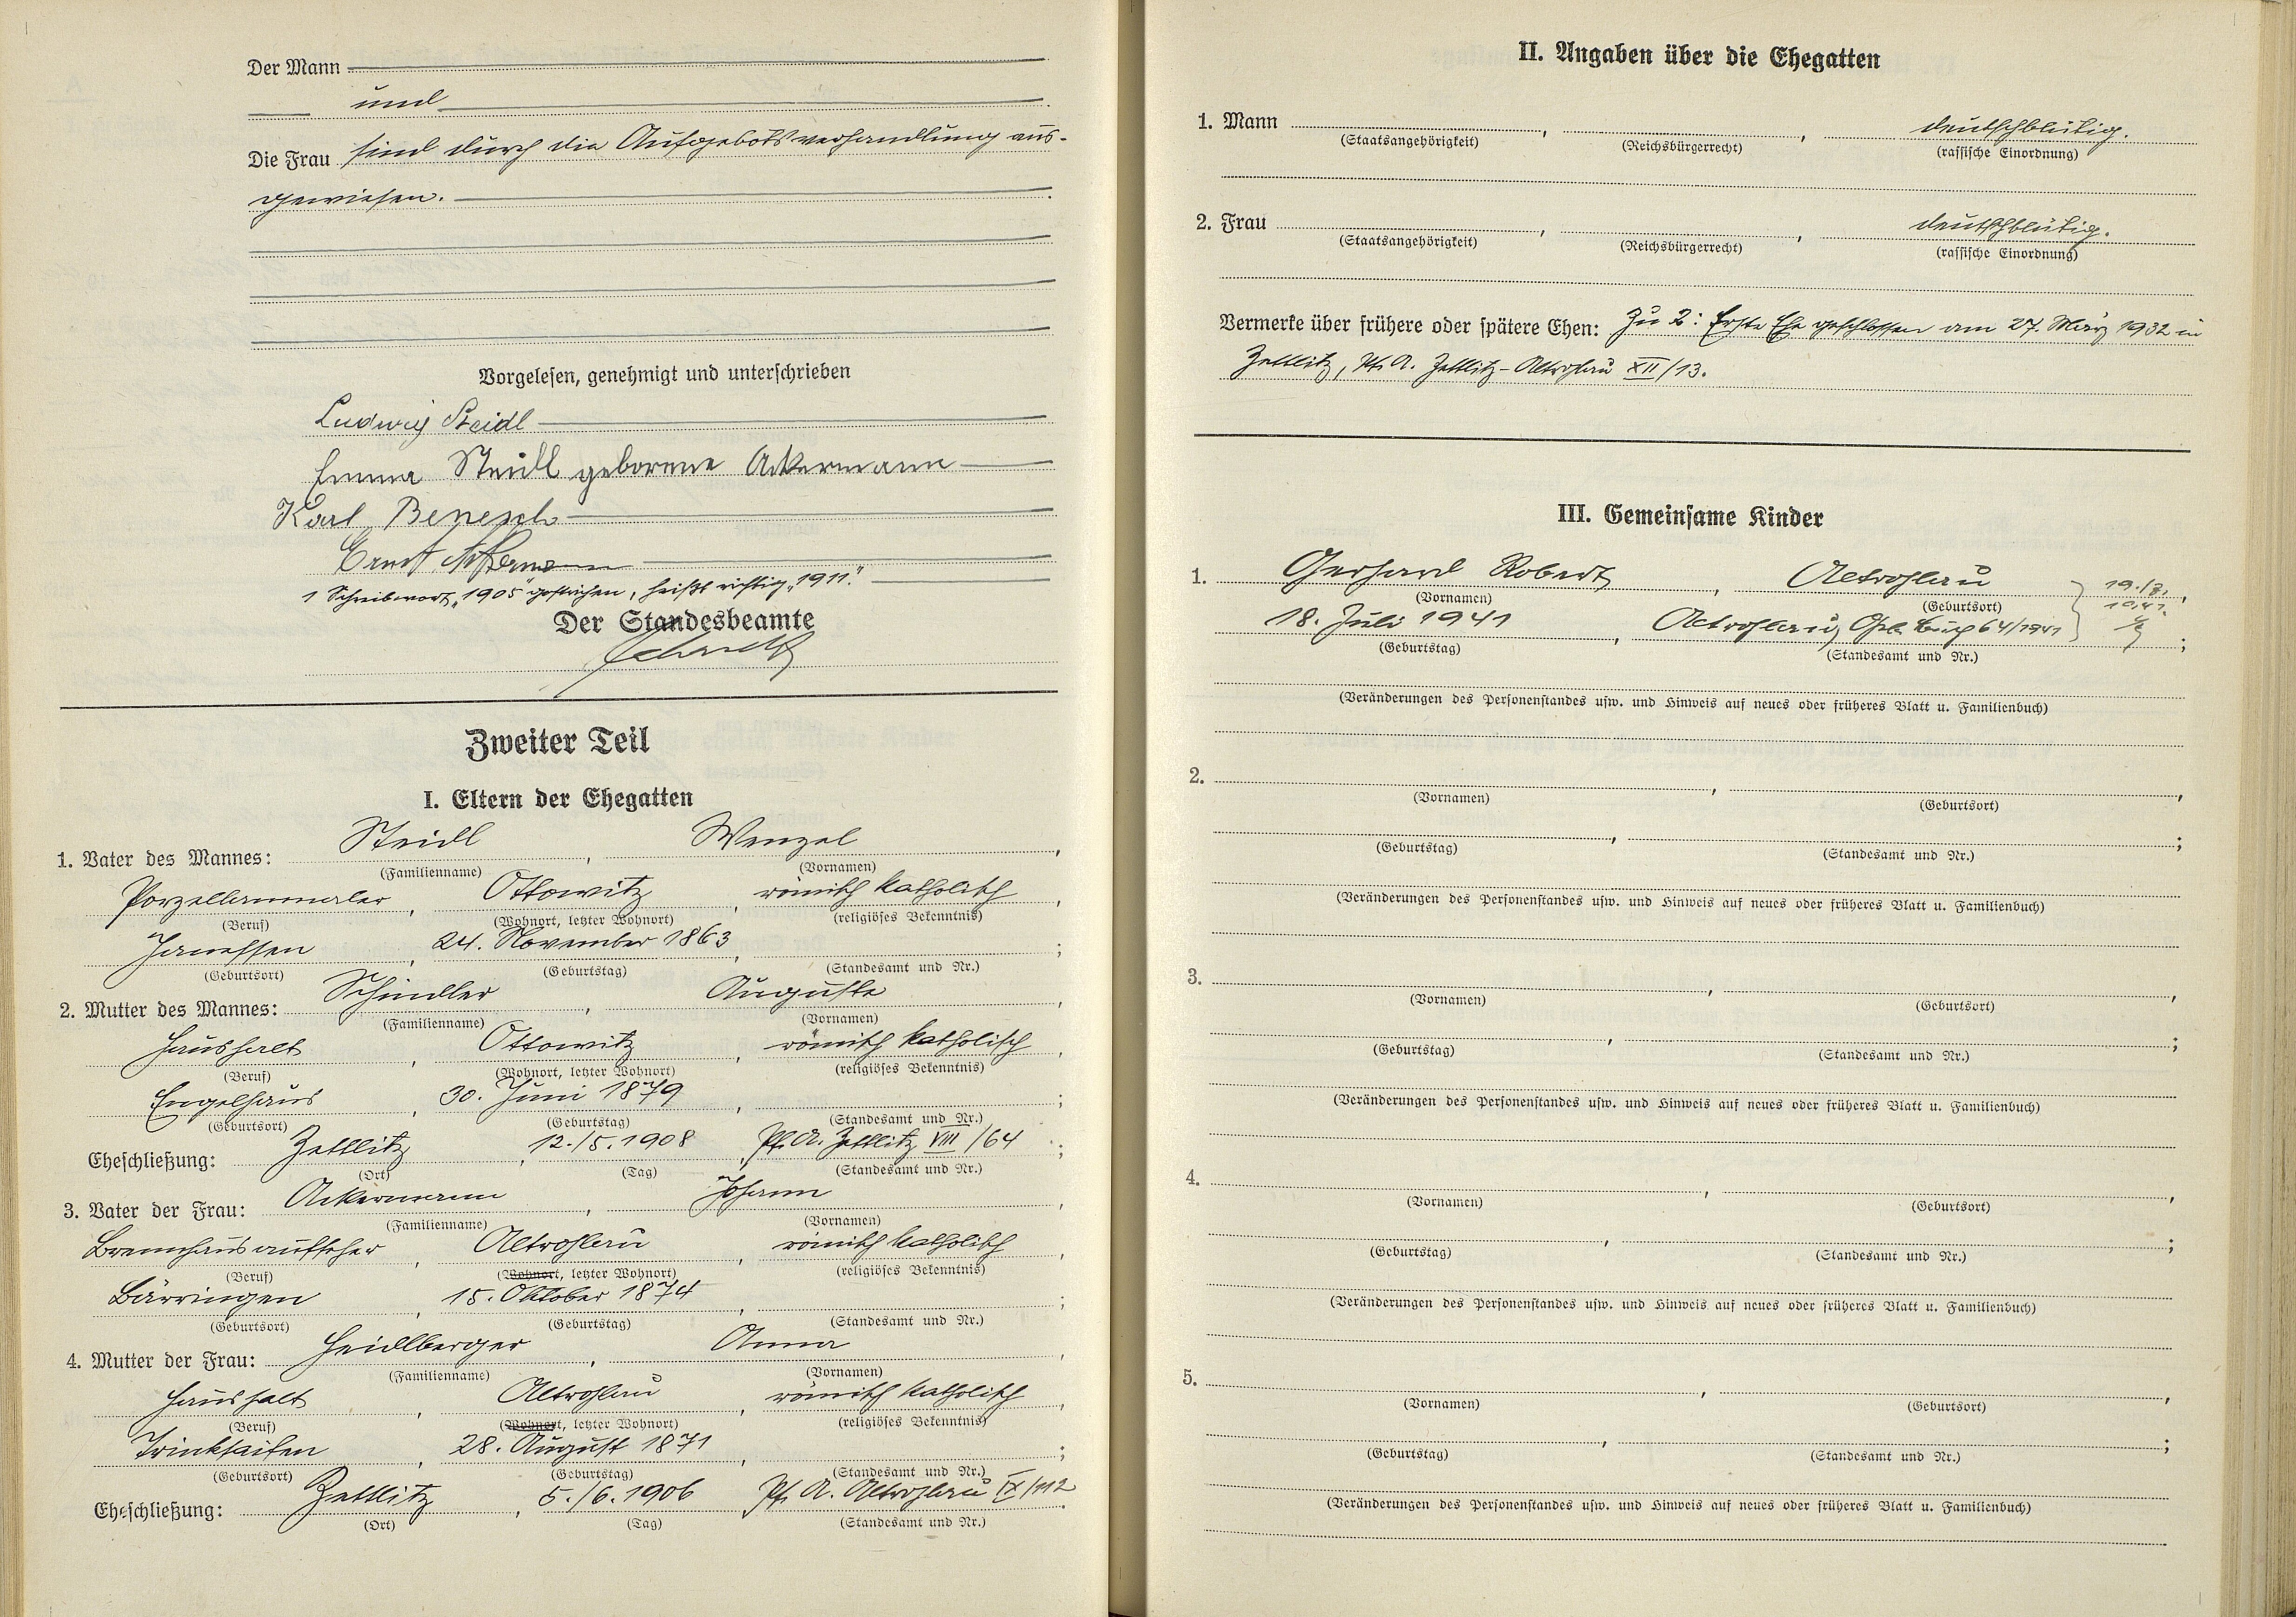 Der Mann
und
Die Frau sind durch die Aufgebotsverhandlung aus-
gewiesen.
Vorgelesen, genehmigt und unterschrieben
Ludwig Steidl
Emma Steidl geborene Ackermann
Karl Benesch
Ernst Ackermann
1 Schreibwort „1905“ gestrichen, heißt richtig „1911“.
Der Standesbeamte
Zweiter Teil
I. Eltern der Ehegatten
1. Vater des Mannes: Steidl, Wenzel,
(Familienname) (Vornamen)
Porzellanmaler, Ottowitz, römisch katholisch,
(Beruf) (Wohnort, letzter Wohnort) (religiöses Bekenntnis)
Janessen, 24. November 1863, ;
(Geburtsort) (Geburtstag) (Standesamt und Nr.)
2. Mutter des Mannes: Schindler, Auguste,
(Familienname) (Vornamen)
Haushalt, Ottowitz, römisch katholisch,
(Beruf) (Wohnort, letzter Wohnort) (religiöses Bekenntnis)
Engelhaus, 30. Juni 1879, ;
(Geburtsort) (Geburtstag) (Standesamt und Nr.)
Eheschließung: Zettlitz, 12./5.1908, Pf. A. Zettlitz VIII/64;
(Ort) (Tag) (Standesamt und Nr.)
3. Vater der Frau: Ackermann, Johann,
(Familienname) (Vornamen)
Brennhausaufseher, Altrohlau, römisch katholisch,
(Beruf) (Wohnort, letzter Wohnort) (religiöses Bekenntnis)
Bärringen, 15. Oktober 1874, ;
(Geburtsort) (Geburtstag) (Standesamt und Nr.)
4. Mutter der Frau: Heidlberger, Anna,
(Familienname) (Vornamen)
Haushalt, Altrohlau, römisch katholisch,
(Beruf) (Wohnort, letzter Wohnort) (religiöses Bekenntnis)
Trinksaifen, 28. August 1871, ;
(Geburtsort) (Geburtstag) (Standesamt und Nr.)
Eheschließung: Zettlitz, 5./6.1906 Pf. A. Altrohlau IX/112
(Ort) (Tag) (Standesamt und Nr.)
II. Angaben über die Ehegatten
1. Mann , , deutschblütig.
(Staatsangehörigkeit) (Reichsbürgerrecht) (rassische Einordnung)
2. Frau , , deutschblütig.
(Staatsangehörigkeit) (Reichsbürgerrecht) (rassische Einordnung)
Vermerke über frühere oder spätere Ehen: Zu 2: Erste Ehe geschlossen am 27. März 1932 in
Zettlitz, Pf. A. Zettlitz-Altrohlau XII/13.
III. Gemeinsame Kinder
1. Gerhard Robert, Altrohlau,
(Vornamen) (Geburtsort)
18. Juli 1941, Altrohlau, Geb. Buch 64/1941;
(Geburtstag) (Standesamt und Nr.)
(Veränderungen des Personenstandes usw. und Hinweis auf neues oder früheres Blatt u. Familienbuch)
2. , ,
(Vornamen) (Geburtsort)
, ;
(Geburtstag) (Standesamt und Nr.)
(Veränderungen des Personenstandes usw. und Hinweis auf neues oder früheres Blatt u. Familienbuch)
3. , ,
(Vornamen) (Geburtsort)
, ;
(Geburtstag) (Standesamt und Nr.)
(Veränderungen des Personenstandes usw. und Hinweis auf neues oder früheres Blatt u. Familienbuch)
4. , ,
(Vornamen) (Geburtsort)
, ;
(Geburtstag) (Standesamt und Nr.)
(Veränderungen des Personenstandes usw. und Hinweis auf neues oder früheres Blatt u. Familienbuch)
5. , ,
(Vornamen) (Geburtsort)
, ;
(Geburtstag) (Standesamt und Nr.)
(Veränderungen des Personenstandes usw. und Hinweis auf neues oder früheres Blatt u. Familienbuch)